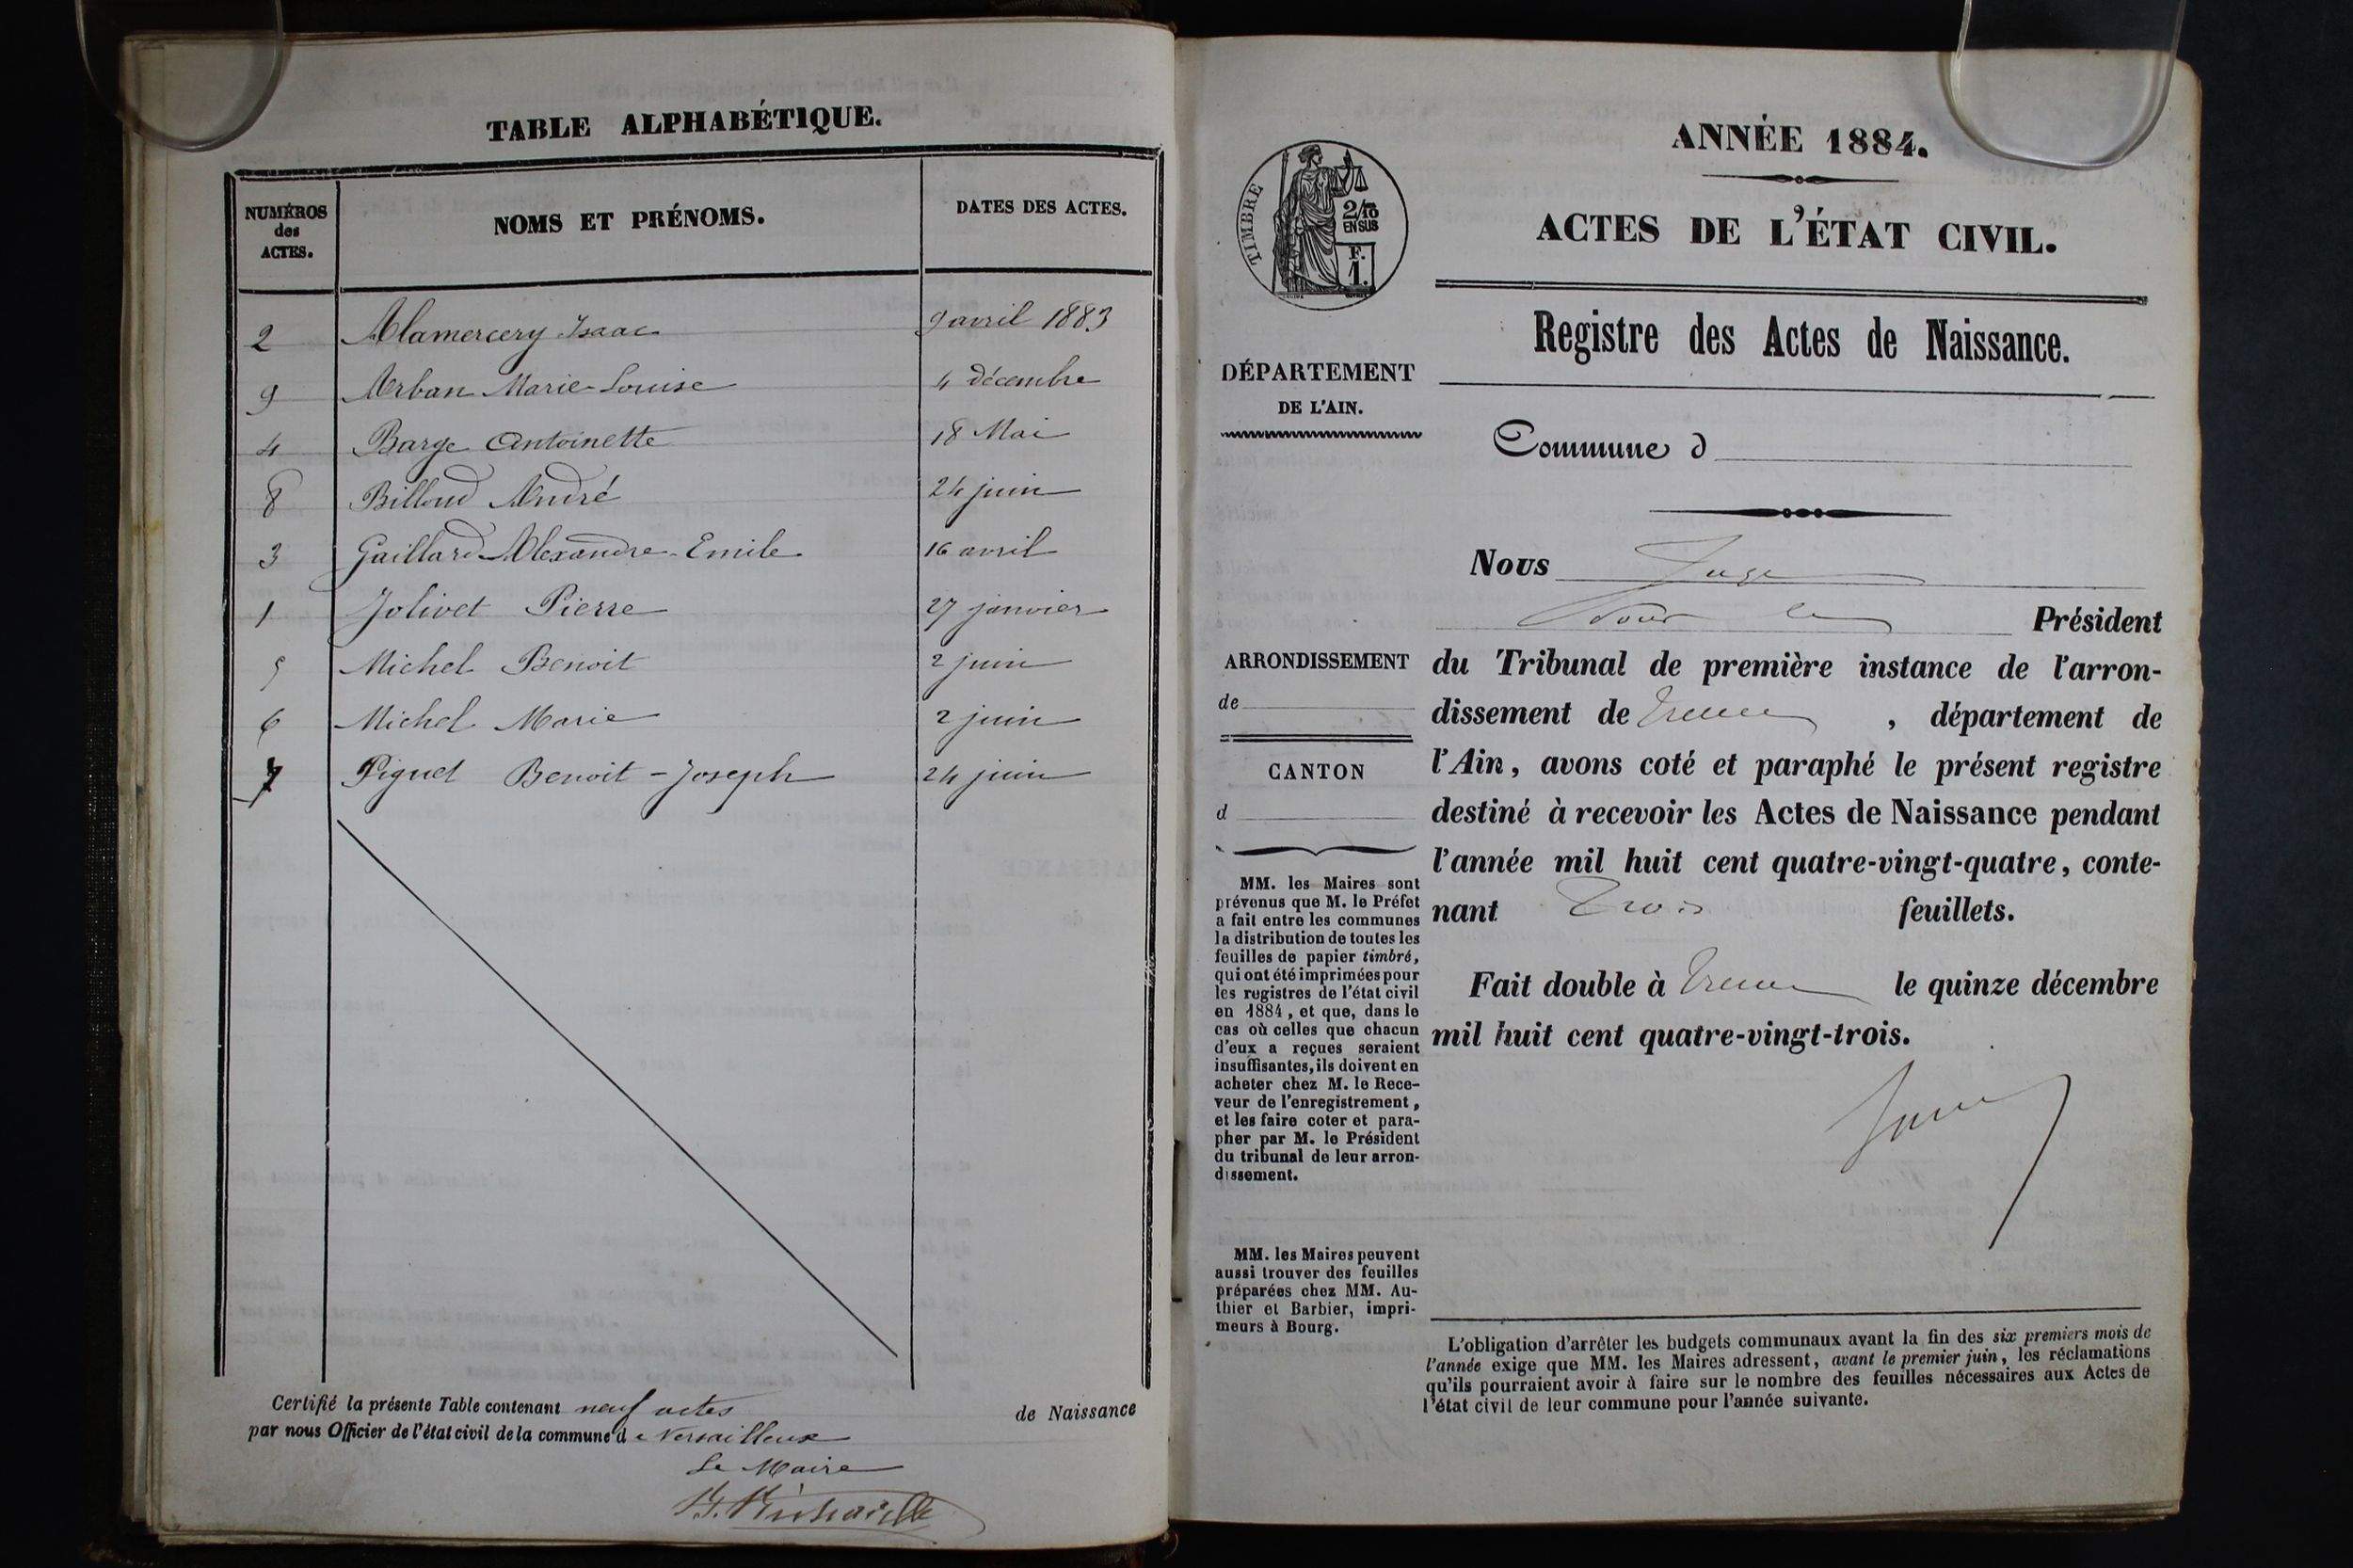 TABLE ALPHABÉTIQUE.
NUMÉROS des ACTES. NOMS ET PRÉNOMS. DATES DES ACTES.
2 Alamercery Isaac 9 avril 1883
9 Arban Marie-Louise 4 décembre
4 Barge Antoinette 18 Mai
8 Billoud André 24 juin
3 Gaillard Alexandre-Emile 16 avril
1 Jolivet Pierre 27 janvier
5 Michel Benoit 2 juin
6 Michel Marie 2 juin
7 Piguet Benoit-Joseph 24 juin
Certifié la présente Table contenant neuf actes de Naissance
par nous Officier de l'état civil de la commune de Versailleux
Le Maire
TIMBRE
2/10
EN SUS
F.
1.
ANNÉE 1884.
ACTES DE L'ÉTAT CIVIL.
Registre des Actes de Naissance.
DÉPARTEMENT
DE L'AIN.
Commune d
ARRONDISSEMENT
de
CANTON
d
MM. les Maires sont
prévenus que M. le Préfet
a fait entre les communes
la distribution de toutes les
feuilles de papier timbré,
qui ont été imprimées pour
les registres de l'état civil
en 1884, et que, dans le
cas où celles que chacun
d'eux a reçues seraient
insuffisantes, ils doivent en
acheter chez M. le Rece-
veur de l'enregistrement,
et les faire coter et para-
pher par M. le Président
du tribunal de leur arron-
dissement.
MM. les Maires peuvent
aussi trouver des feuilles
préparées chez MM. Au-
thier et Barbier, impri-
meurs à Bourg.
Nous Juge
pour le Président
du Tribunal de première instance de l'arron-
dissement de Trévoux, département de
l'Ain, avons coté et paraphé le présent registre
destiné à recevoir les Actes de Naissance pendant
l'année mil huit cent quatre-vingt-quatre, conte-
nant Trois feuillets.
Fait double à Trévoux le quinze décembre
mil huit cent quatre-vingt-trois.
L'obligation d'arrêter les budgets communaux avant la fin des six premiers mois de
l'année exige que MM. les Maires adressent, avant le premier juin, les réclamations
qu'ils pourraient avoir à faire sur le nombre des feuilles nécessaires aux Actes de
l'état civil de leur commune pour l'année suivante.